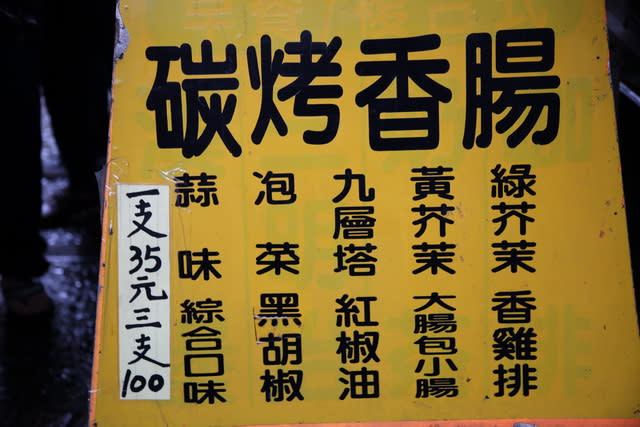 碳烤香腸
綠芥茉
香雞排
黃芥茉
大腸包小腸
九層塔
紅椒油
泡菜
黑胡椒
蒜味
綜合口味
一支35元三支100